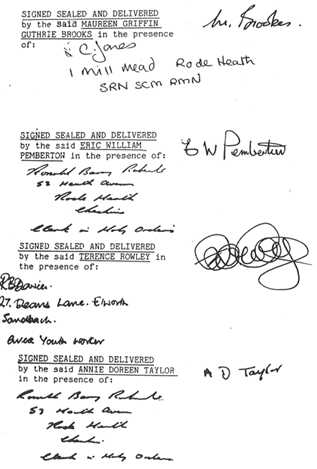 SIGNED SEALED AND DELIVERED
by the said MAUREEN GRIFFIN
GUTHRIE BROOKS in the presence
of:
M. Brooks.
C. Jones
1 Mill Mead Rode Heath
SRN SCM RMN
SIGNED SEALED AND DELIVERED
by the said ERIC WILLIAM
PEMBERTON in the presence of:
E W Pemberton
Ronald Barry Roberts
53 Heath Avenue
Rode Heath
Cheshire
Clerk in Holy Orders
SIGNED SEALED AND DELIVERED
by the said TERENCE ROWLEY in
the presence of:
RB Davies.
27. Deans Lane. Elworth
Sandbach.
Youth Worker
SIGNED SEALED AND DELIVERED
by the said ANNIE DOREEN TAYLOR
in the presence of:
A D Taylor
Ronald Barry Roberts
53 Heath Avenue
Rode Heath
Cheshire
Clerk in Holy Orders